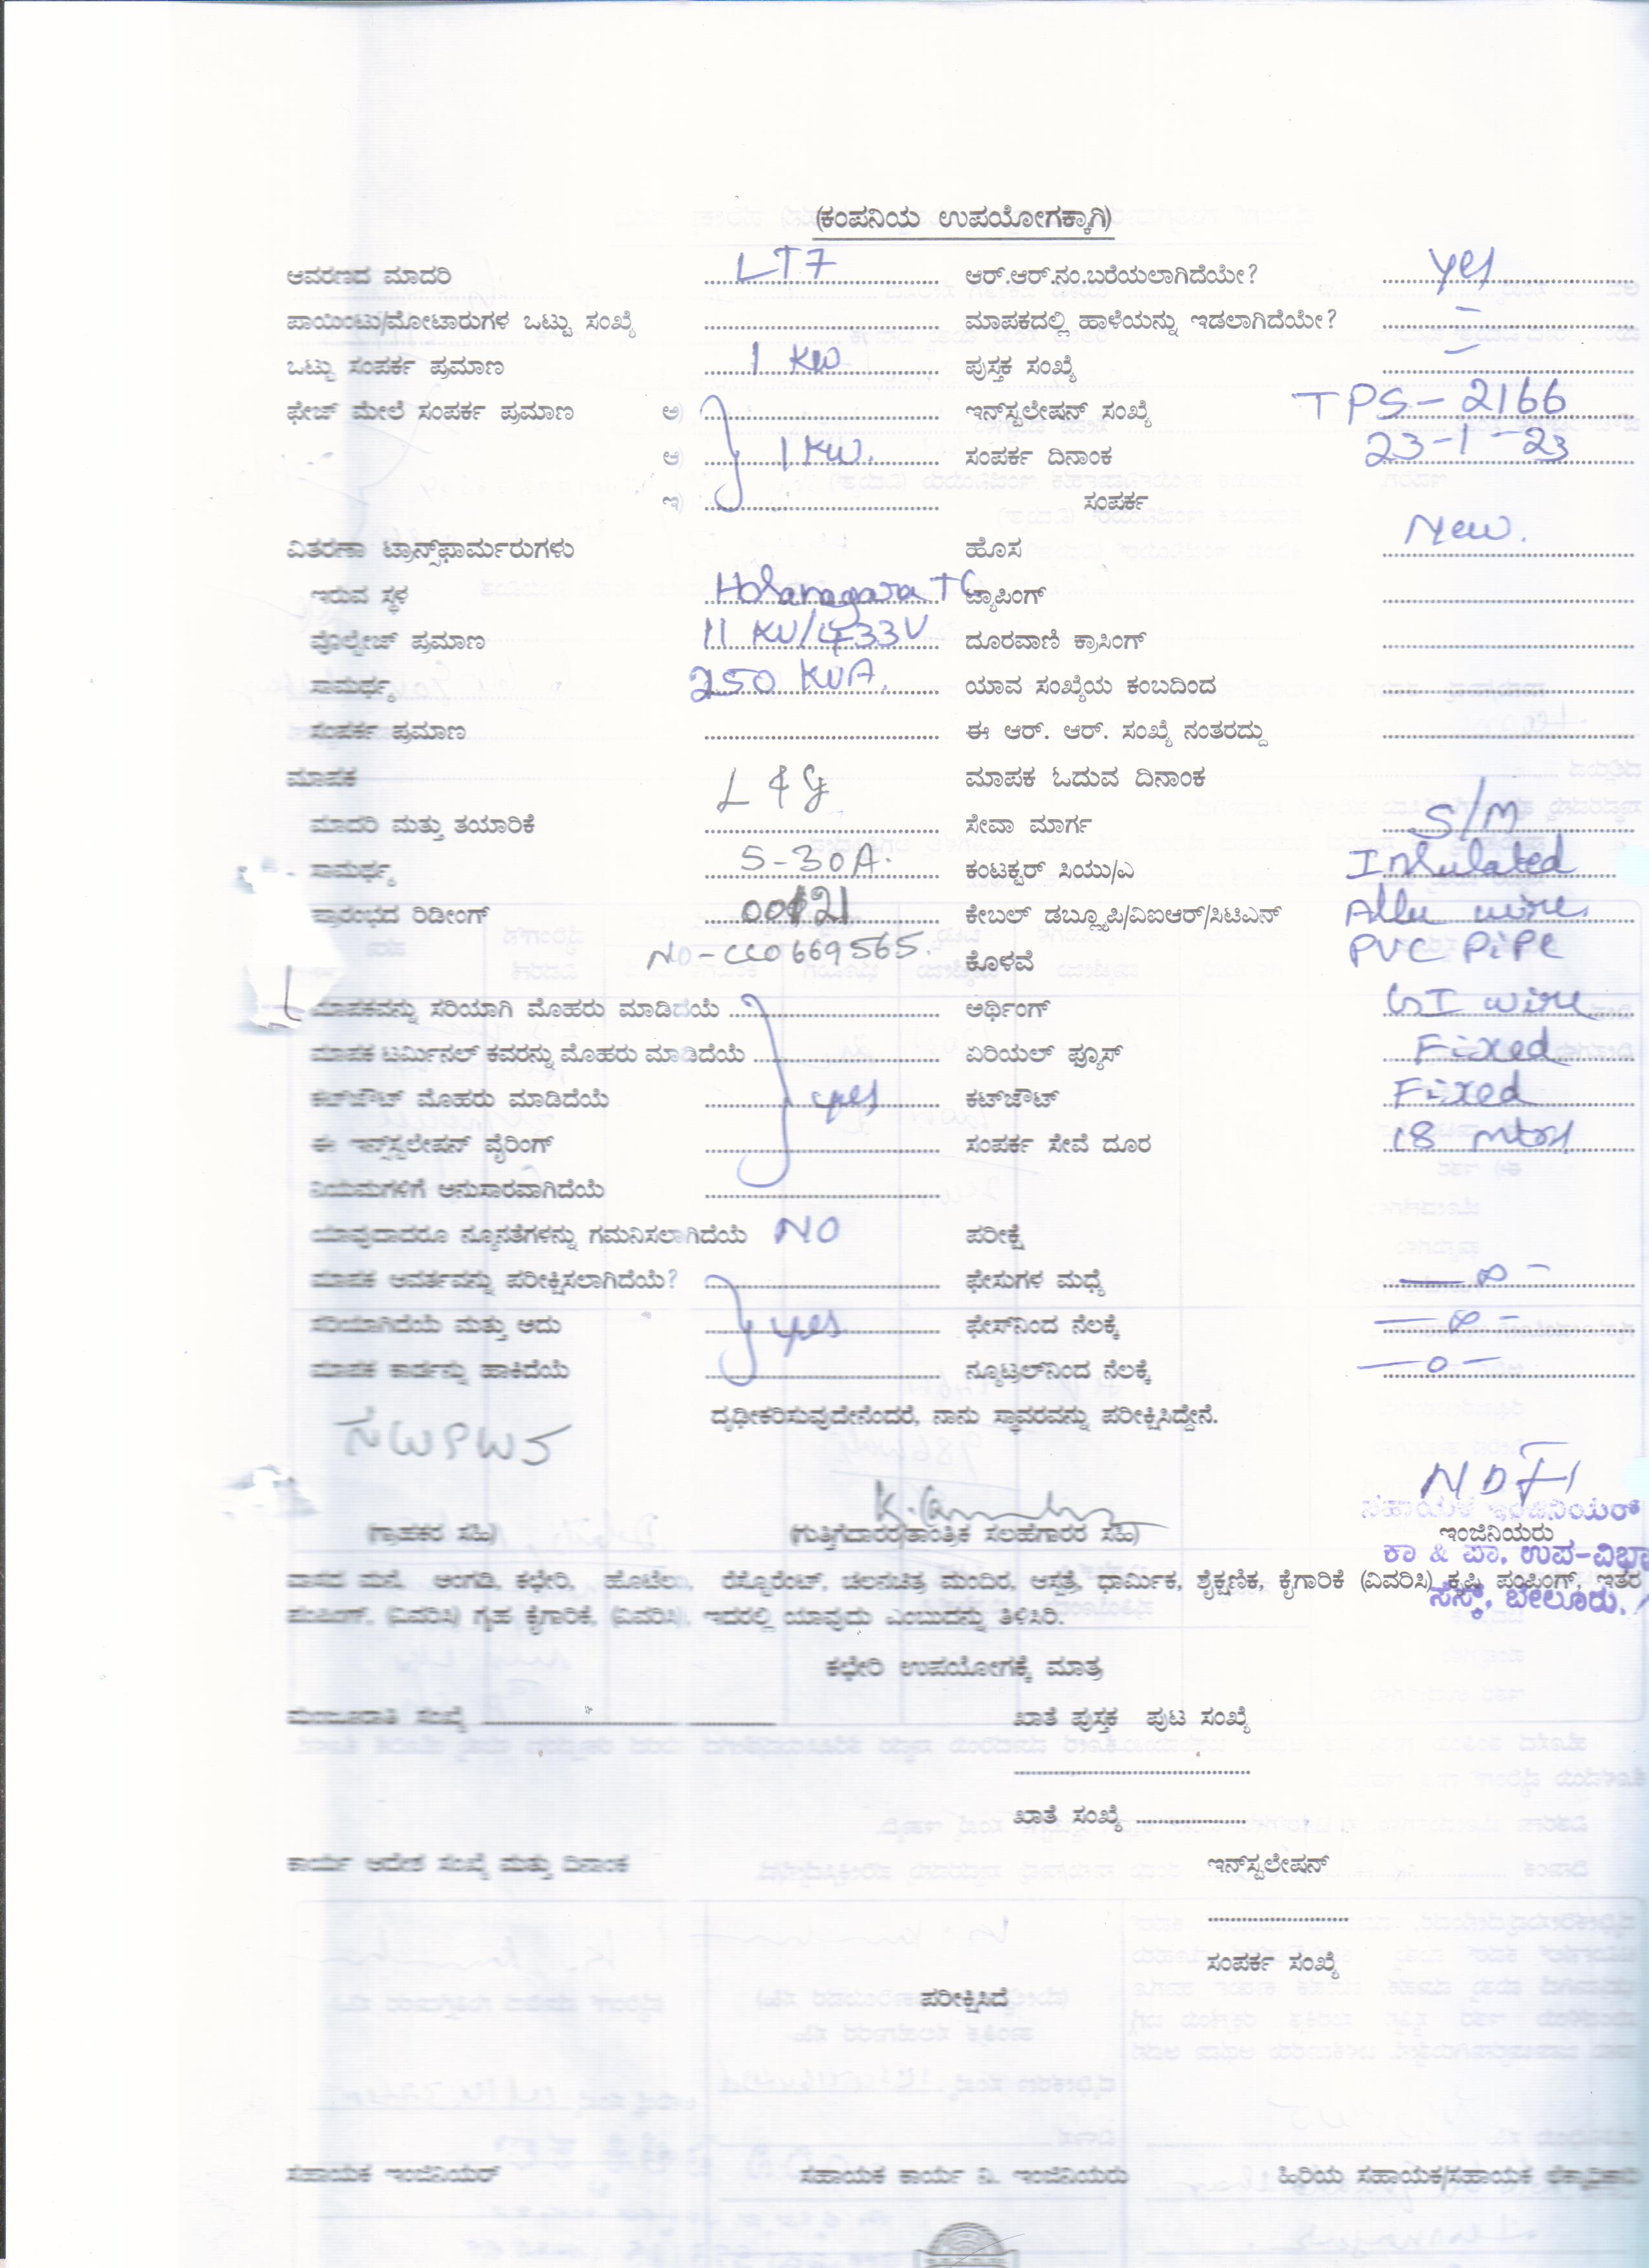 (ಕಂಪನಿಯ ಉಪಯೋಗಕ್ಕಾಗಿ)
ಆವರಣದ ಮಾದರಿ LT7 ಆರ್.ಆರ್.ನಂ.ಬರೆಯಲಾಗಿದೆಯೇ? yes
ಪಾಯಿಂಟು/ಮೋಟಾರುಗಳ ಒಟ್ಟು ಸಂಖ್ಯೆ ಮಾಪಕದಲ್ಲಿ ಹಾಳೆಯನ್ನು ಇಡಲಾಗಿದೆಯೇ? -
ಒಟ್ಟು ಸಂಪರ್ಕ ಪ್ರಮಾಣ 1 KW ಪುಸ್ತಕ ಸಂಖ್ಯೆ -
ಫೇಜ್ ಮೇಲೆ ಸಂಪರ್ಕ ಪ್ರಮಾಣ ಅ) ಇನ್‌ಸ್ಟಲೇಷನ್ ಸಂಖ್ಯೆ TPS-2166
ಆ) 1 KW. ಸಂಪರ್ಕ ದಿನಾಂಕ 23-1-23
ಇ) ಸಂಪರ್ಕ
ವಿತರಣಾ ಟ್ರಾನ್ಸ್‌ಫಾರ್ಮರುಗಳು ಹೊಸ New.
ಇರುವ ಸ್ಥಳ Holanagara TC ಟ್ಯಾಪಿಂಗ್
ವೊಲ್ಟೇಜ್ ಪ್ರಮಾಣ 11 KV/433V ದೂರವಾಣಿ ಕ್ರಾಸಿಂಗ್
ಸಾಮರ್ಥ್ಯ 250 KVA. ಯಾವ ಸಂಖ್ಯೆಯ ಕಂಬದಿಂದ
ಸಂಪರ್ಕ ಪ್ರಮಾಣ ಈ ಆರ್. ಆರ್. ಸಂಖ್ಯೆ ನಂತರದ್ದು
ಮಾಪಕ L & G ಮಾಪಕ ಓದುವ ದಿನಾಂಕ
ಮಾದರಿ ಮತ್ತು ತಯಾರಿಕೆ ಸೇವಾ ಮಾರ್ಗ S/M
ಸಾಮರ್ಥ್ಯ 5-30A. ಕಂಟಕ್ಟರ್ ಸಿಯು/ಎ Insulated
ಪ್ರಾರಂಭದ ರಿಡೀಂಗ್ ಕೇಬಲ್ ಡಬ್ಲ್ಯೂಪಿ/ವಿಐಆರ್/ಸಿಟಿಎಸ್ Allu wire
NO-CCO669565. ಕೊಳವೆ PVC PiPe
ಮಾಪಕವನ್ನು ಸರಿಯಾಗಿ ಮೊಹರು ಮಾಡಿದೆಯೆ ಅರ್ಥಿಂಗ್ GI wire
ಮಾಪಕ ಟರ್ಮಿನಲ್ ಕವರನ್ನು ಮೊಹರು ಮಾಡಿದೆಯೆ ಏರಿಯಲ್ ಫ್ಯೂಸ್ Fixed
ಕಟ್‌ಔಟ್ ಮೊಹರು ಮಾಡಿದೆಯೆ yes ಕಟ್‌ಔಟ್ Fixed
ಈ ಇನ್‌ಸ್ಟಲೇಷನ್ ವೈರಿಂಗ್ ಸಂಪರ್ಕ ಸೇವೆ ದೂರ 18 mtrs
ನಿಯಮಗಳಿಗೆ ಅನುಸಾರವಾಗಿದೆಯೆ
ಯಾವುದಾದರೂ ನ್ಯೂನತೆಗಳನ್ನು ಗಮನಿಸಲಾಗಿದೆಯೆ NO ಪರೀಕ್ಷೆ
ಮಾಪಕ ಆವರ್ತವನ್ನು ಪರೀಕ್ಷಿಸಲಾಗಿದೆಯೆ? ಫೇಸುಗಳ ಮಧ್ಯೆ
ಸರಿಯಾಗಿದೆಯೆ ಮತ್ತು ಅದು yes ಫೇಸ್‌ನಿಂದ ನೆಲಕ್ಕೆ
ಮಾಪಕ ಕಾರ್ಡನ್ನು ಹಾಕಿದೆಯೆ ನ್ಯೂಟ್ರಲ್‌ನಿಂದ ನೆಲಕ್ಕೆ
ದೃಢೀಕರಿಸುವುದೇನೆಂದರೆ, ನಾನು ಸ್ಥಾವರವನ್ನು ಪರೀಕ್ಷಿಸಿದ್ದೇನೆ.
ಸಹಾಯಕ ಇಂಜಿನಿಯರ್
(ಗ್ರಾಹಕರ ಸಹಿ) (ಗುತ್ತಿಗೆದಾರರ/ತಾಂತ್ರಿಕ ಸಲಹೆಗಾರರ ಸಹಿ) ಇಂಜಿನಿಯರು
ಕಾ & ಪಾ. ಉಪ-ವಿಭಾ
ವಾಸದ ಮನೆ, ಅಂಗಡಿ, ಕಛೇರಿ, ಹೊಟೆಲು, ರೆಸ್ಟೊರೆಂಟ್, ಚಲನಚಿತ್ರ ಮಂದಿರ, ಆಸ್ಪತ್ರೆ, ಧಾರ್ಮಿಕ, ಶೈಕ್ಷಣಿಕ, ಕೈಗಾರಿಕೆ (ವಿವರಿಸಿ) ಕೃಷಿ ಪಂಪಿಂಗ್, ಇತರ
ಸೆಸ್ಕ್, ಬೇಲೂರು.
ಪಂಪಿಂಗ್, (ವಿವರಿಸಿ) ಗೃಹ ಕೈಗಾರಿಕೆ, (ವಿವರಿಸಿ), ಇದರಲ್ಲಿ ಯಾವುದು ಎಂಬುದನ್ನು ತಿಳಿಸಿರಿ.
ಕಛೇರಿ ಉಪಯೋಗಕ್ಕೆ ಮಾತ್ರ
ಮಂಜೂರಾತಿ ಸಂಖ್ಯೆ ಖಾತೆ ಪುಸ್ತಕ ಪುಟ ಸಂಖ್ಯೆ
ಖಾತೆ ಸಂಖ್ಯೆ
ಕಾರ್ಯ ಆದೇಶ ಸಂಖ್ಯೆ ಮತ್ತು ದಿನಾಂಕ ಇನ್‌ಸ್ಟಲೇಷನ್
ಸಂಪರ್ಕ ಸಂಖ್ಯೆ
ಪರೀಕ್ಷಿಸಿದೆ
ಸಹಾಯಕ ಇಂಜಿನಿಯರ್ ಸಹಾಯಕ ಕಾರ್ಯ ನಿ. ಇಂಜಿನಿಯರು ಹಿರಿಯ ಸಹಾಯಕ/ಸಹಾಯಕ